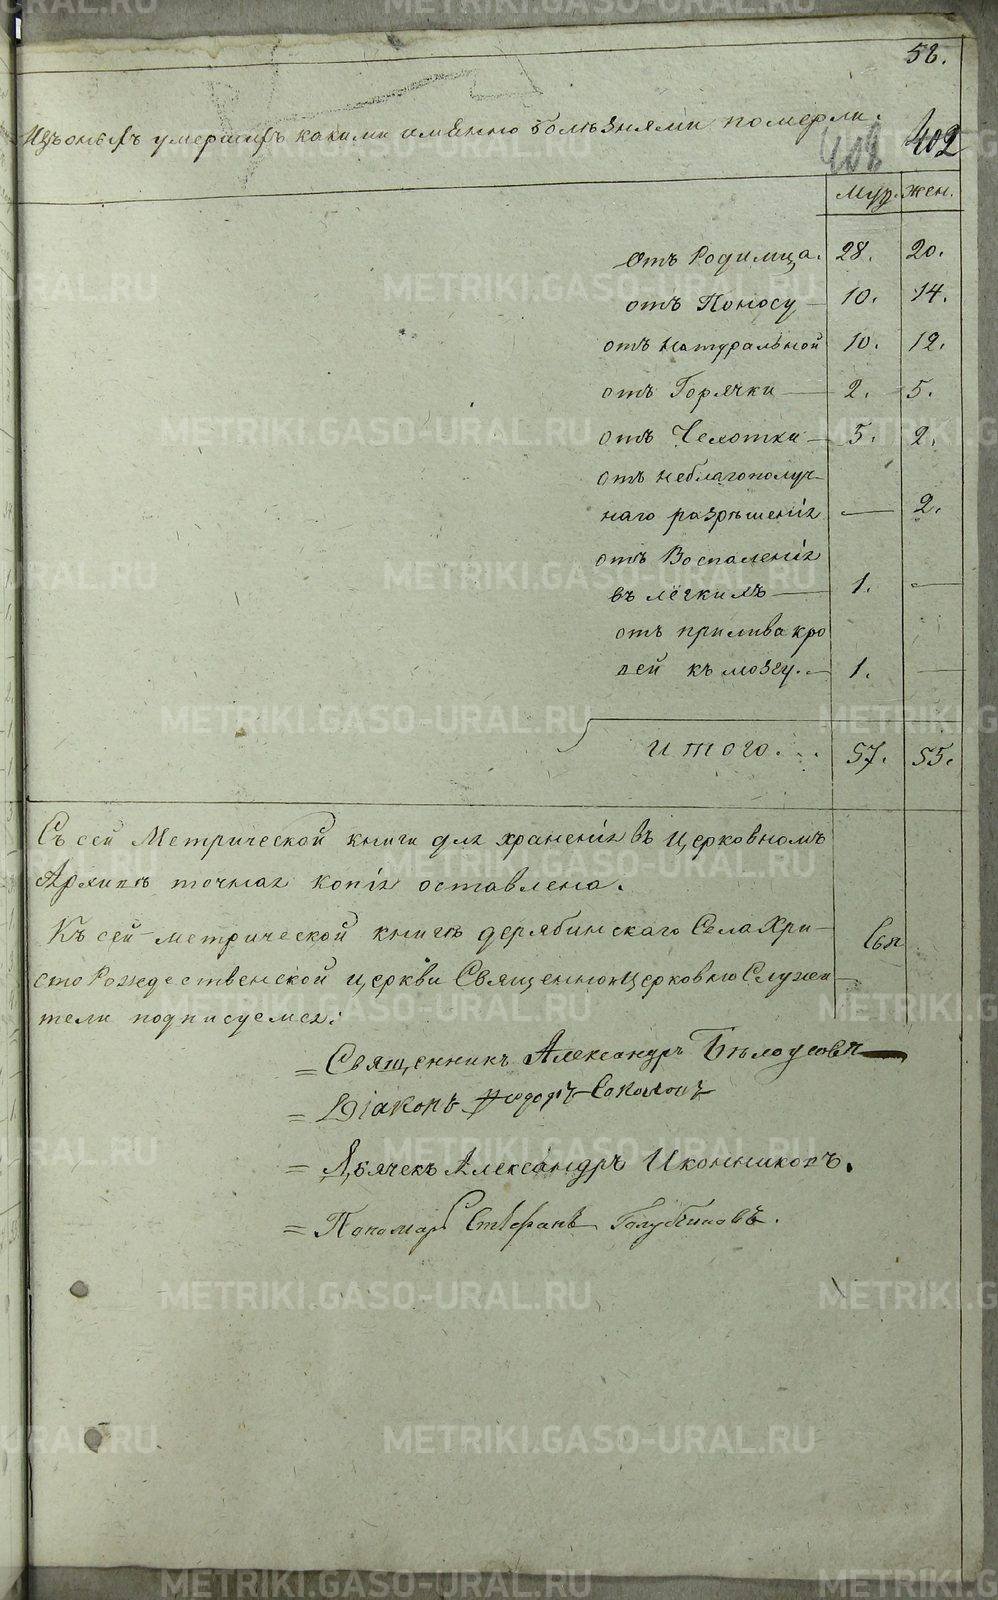 58.
Изъоныхъ умершихъ какими именно болѣзнями померли.
402
Муж. Жен.
Отъ Родимца. 28. 20.
отъ Поносу — 10. 14.
отъ Натуральной 10. 12.
отъ Горячки — 2. 5.
отъ Чехотки — 5. 2.
отъ неблагополуч-
наго разрѣшенія — 2.
отъ Воспаленія
въ лёгкихъ — 1. —
отъ прилива кро
вей къ мозгу. — 1. —
итого. . . 57. 55.
Съ сей Метрической книги для храненія въ Церковномъ
Архивѣ точная копія оставлена.
Къ сей метрической книгѣ дерябинскаго Села Хри-
сто Рождественской церкви Священноицерковно Служи
тели подписуемся:
= Священникъ Александръ Бѣлоусовъ
= Діаконъ Ѳеодоръ Соколовъ
= Дьячекъ Александръ Иконниковъ.
= Пономарь Стефанъ Голубчиковъ.
METRIKI.GASO-URAL.RU